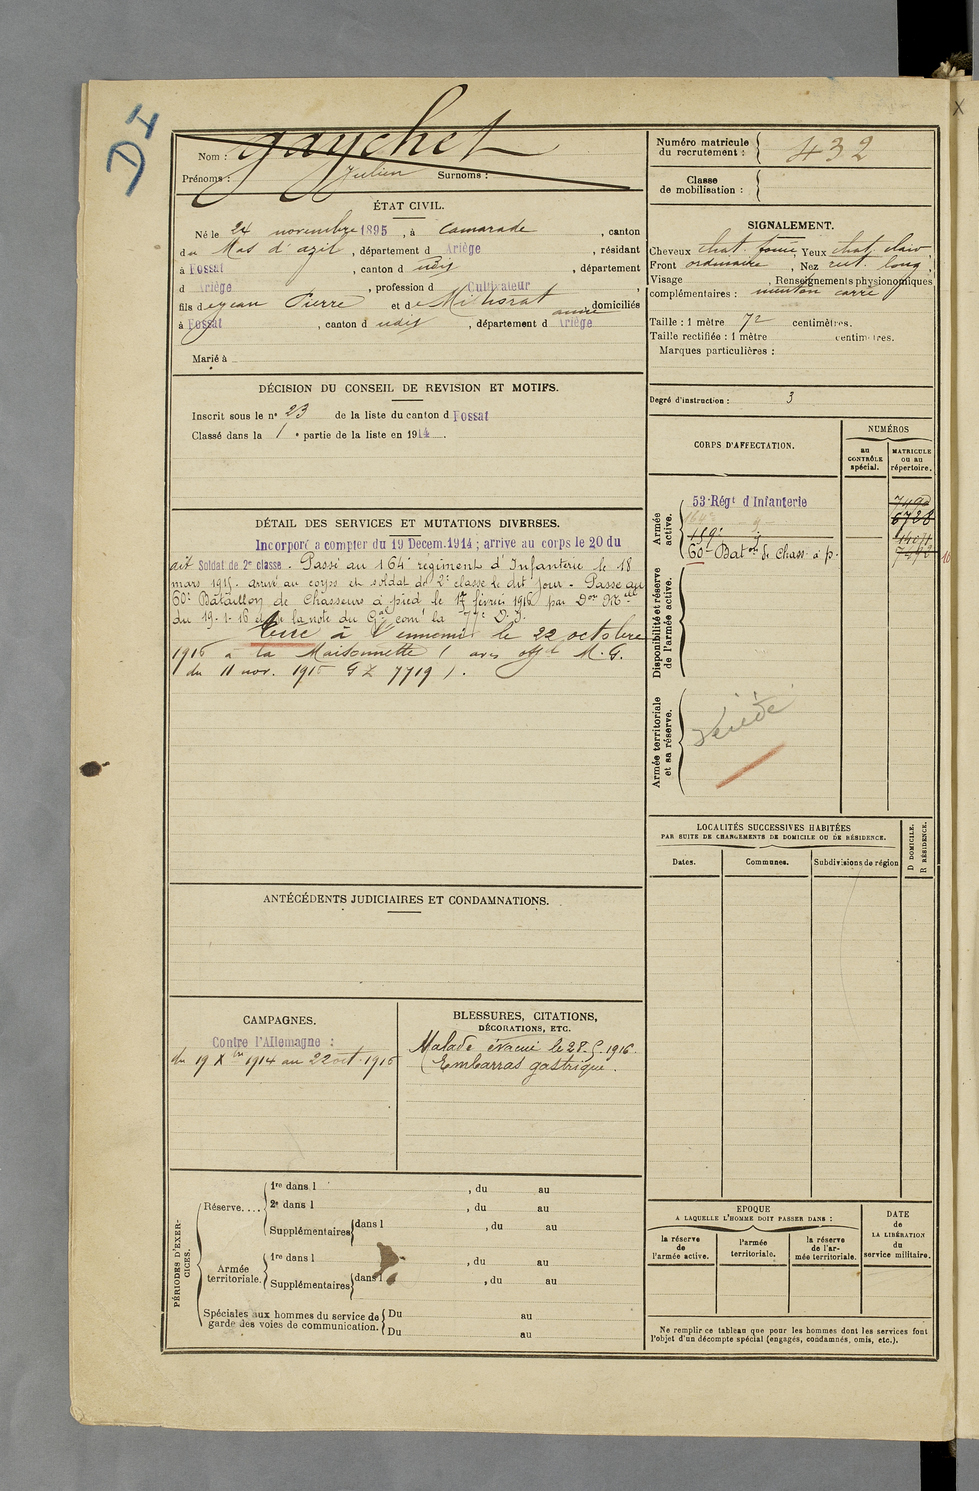 D4
Nom : Gaychet
Prénoms : Julien Surnoms :
Numéro matricule
du recrutement : 432
Classe
de mobilisation :
ÉTAT CIVIL.
Né le 24 novembre 1895, à Camarade, canton
du Mas d'azil, département d Ariège, résidant
à Fossat, canton d udit, département
d Ariège, profession d Cultivateur,
fils de Jean Pierre et de
anne domiciliés
à Fossat, canton d udit, département d Ariège
Marié à
SIGNALEMENT.
Cheveux chat. foncé, Yeux chat. clair,
Front ordinaire, Nez rect. long,
Visage , Renseignements physionomiques
complémentaires : menton carré
Taille : 1 mètre 72 centimètres.
Taille rectifiée : 1 mètre centimètres.
Marques particulières :
Degré d'instruction : 3
DÉCISION DU CONSEIL DE REVISION ET MOTIFS.
Inscrit sous le n° 23 de la liste du canton d Fossat
Classé dans la 1e partie de la liste en 1914.
CORPS D'AFFECTATION.
NUMÉROS
au
CONTRÔLE
spécial.
MATRICULE
ou au
répertoire.
Armée
active.
53e Régt d'Infanterie
164e
159e
60e Baton de Chass. à p.
6728
Disponibilité et réserve
de l'armée active.
Armée territoriale
et sa réserve.
Décédé
DÉTAIL DES SERVICES ET MUTATIONS DIVERSES.
Incorporé à compter du 19 Décem. 1914 ; arrivé au corps le 20 du
dit Soldat de 2e classe. Passé au 164e régiment d'Infanterie le 18
mars 1915. arrivé au corps et soldat de 2e classe le dit jour. Passé au
60e Bataillon de Chasseurs à pied le 17 février 1916 par Don Melle
du 19-1-16 et la note du Gal comt la 77e D.I.
Tué à l'ennemi le 22 octobre
1916 à la Maisonnette (avis offel M.G.
du 11 nov. 1916 GZ 7719).
ANTÉCÉDENTS JUDICIAIRES ET CONDAMNATIONS.
LOCALITÉS SUCCESSIVES HABITÉES
PAR SUITE DE CHANGEMENTS DE DOMICILE OU DE RÉSIDENCE.
Dates.
Communes.
Subdivisions de région
D DOMICILE.
R RÉSIDENCE.
CAMPAGNES.
Contre l'Allemagne :
du 19 Xbre 1914 au 22 oct. 1916
BLESSURES, CITATIONS,
DÉCORATIONS, ETC.
Malade évacué le 28-5-1916.
Embarras gastrique.
PÉRIODES D'EXER-
CICES.
Réserve....
1re dans l , du au
2e dans l , du au
Supplémentaires dans l , du au
Armée
territoriale.
1re dans l , du au
Supplémentaires dans l , du au
Spéciales aux hommes du service de
garde des voies de communication.
Du au
Du au
EPOQUE
A LAQUELLE L'HOMME DOIT PASSER DANS :
la réserve
de
l'armée active.
l'armée
territoriale.
la réserve
de l'ar-
mée territoriale.
DATE
de
LA LIBÉRATION
du
service militaire.
Ne remplir ce tableau que pour les hommes dont les services font
l'objet d'un décompte spécial (engagés, condamnés, omis, etc.).